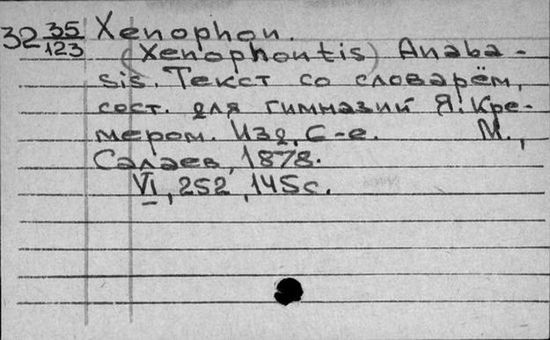 32 35/123 Xenophon.
(Xenophontis) Anaba-
sis. Текст со словарём,
сост. для гимназий Я. Кре-
мером. Изд. 6-е. М.,
Салаев, 1878.
VI, 252, 145с.